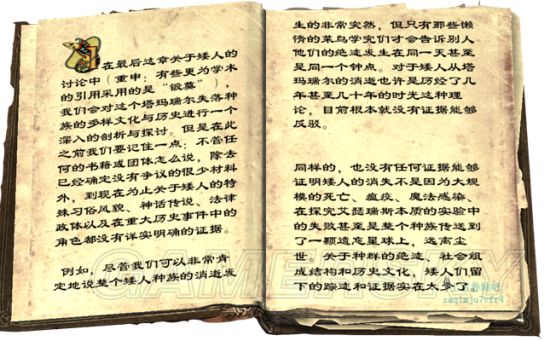 在最后这章关于矮人的
讨论中（重申：有些更为学术
的引用采用的是“锻莫”），
我们会对这个塔玛瑞尔失落种
族的多样文化与历史进行一个
深入的剖析与探讨。但是在此
之前我们要记住一点：不管任
何的书籍或团体怎么说，除去
已经确定没有争议的很少材料
外，到现在为止关于矮人的特
殊习俗风貌、神话传说、法律
政体以及在重大历史事件中的
角色都没有详实明确的证据。
例如，尽管我们可以非常肯
定地说整个矮人种族的消逝发
生的非常突然，但只有那些懒
惰的菜鸟学究们才会告诉别人
他们的绝迹发生在同一天甚至
是同一个钟点。对于矮人从塔
玛瑞尔的消逝也许是历经了几
年甚至几十年的时光这种理
论，目前根本就没有证据能够
反驳。
同样的，也没有任何证据能够
证明矮人的消失不是因为大规
模的死亡、瘟疫、魔法感染、
在探究艾瑟瑞斯本质的实验中
的失败甚至是整个种族传送到
了一颗遗忘星球上，远离尘
世。关于种群的绝迹，社会组
成结构和历史文化，矮人们留
下的踪迹和证据实在太少了
GAMERSKY
卷轴吧
zaq1mju7vfr4